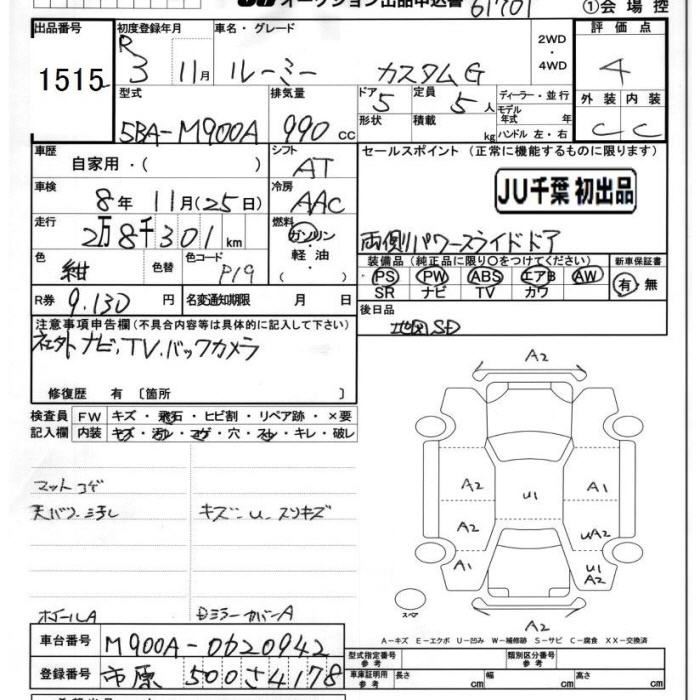 オークション出品申込書 61701 ①会場控
出品番号 1515
初度登録年月 R3 11月
車名・グレード ルーミー カスタムG
2WD・4WD
評価点 4
外装 C 内装 C
型式 5BA-M900A
排気量 990cc
ドア 5 形状
定員 5人 積載 kg
ディーラー・並行
モデル年式 年
ハンドル 左・右
車歴 自家用・( )
シフト AT
セールスポイント (正常に機能するものに限ります)
JU千葉 初出品
車検 8年 11月(25日)
冷房 AAC
走行 2万8千301km
燃料 ガソリン・軽油・( )
両側パワースライドドア
色 紺 色替 色コード P19
装備品(純正品に限り○をつけてください) 新車保証書
PS PW ABS エアB AW 有 無
SR ナビ TV カワ
R券 9.130円 名変通知期限 月 日
後日品 地図SD
注意事項申告欄(不具合内容等は具体的に記入して下さい)
社外ナビ、TV、バックカメラ
修復歴 有 〔箇所 〕
検査員記入欄
FW キズ・飛石・ヒビ割・リペア跡・×要
内装 キズ・汚レ・コゲ・穴・スレ・キレ・破レ
マットコゲ
キズ・U・スリキズ
ホイールA
ミラーカバーA
A2
A2 U1 A1
A2 UA2
A1 U1 A2
スペア
A2
A-キズ E-エクボ U-凹み W-補修跡 S-サビ C-腐食 XX-交換済
車台番号 M900A-0620942
登録番号 市原 500 さ 4178
型式指定番号 参考 類別区分番号 参考
車庫証明用 参考 長さ cm 幅 cm 高さ cm